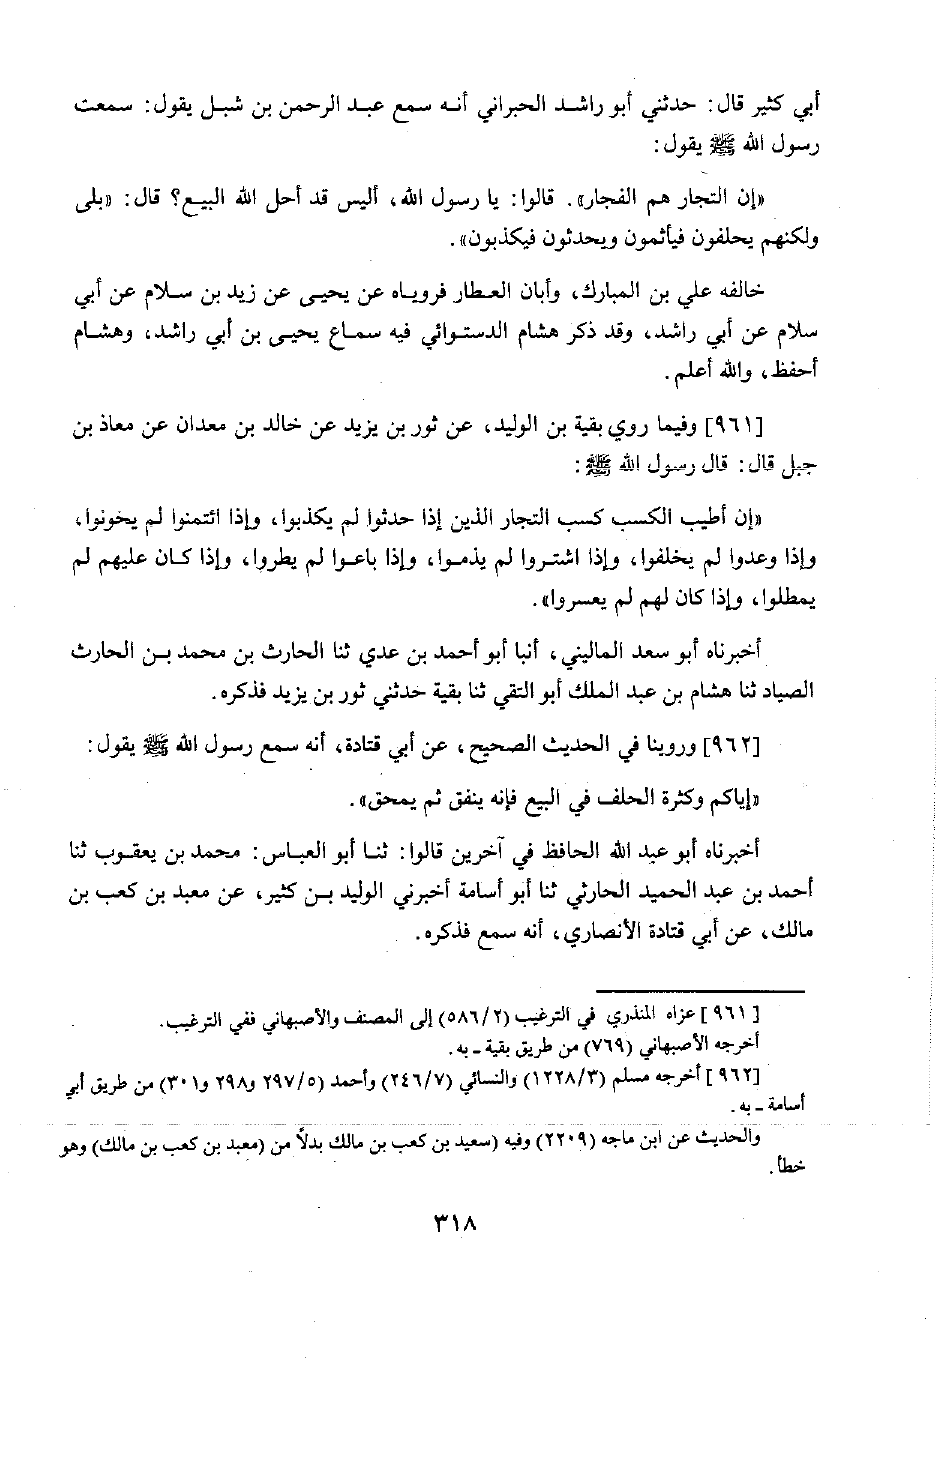 أبي كثير قال: حدثني أبو راشد الحبراني أنه سمع عبد الرحمن بن شبل يقول: سمعت
رسول الله ﷺ يقول:
«إن التجار هم الفجار». قالوا: يا رسول الله، أليس قد أحل الله البيع؟ قال: «بلى
ولكنهم يحلفون فيأثمون ويحدثون فيكذبون».
خالفه علي بن المبارك، وأبان العطار فروياه عن يحيى عن زيد بن سلام عن أبي
سلام عن أبي راشد، وقد ذكر هشام الدستوائي فيه سماع يحيى بن أبي راشد، وهشام
أحفظ، والله أعلم.
[٩٦١] وفيما روي بقية بن الوليد، عن ثور بن يزيد عن خالد بن معدان عن معاذ بن
جبل قال: قال رسول الله ﷺ:
«إن أطيب الكسب كسب التجار الذين إذا حدثوا لم يكذبوا، وإذا ائتمنوا لم يخونوا،
وإذا وعدوا لم يخلفوا، وإذا اشتروا لم يذموا، وإذا باعوا لم يطروا، وإذا كان عليهم لم
يمطلوا، وإذا كان لهم لم يعسروا».
أخبرناه أبو سعد الماليني، أنبا أبو أحمد بن عدي ثنا الحارث بن محمد بن الحارث
الصياد ثنا هشام بن عبد الملك أبو التقي ثنا بقية حدثني ثور بن يزيد فذكره.
[٩٦٢] وروينا في الحديث الصحيح، عن أبي قتادة، أنه سمع رسول الله ﷺ يقول:
«إياكم وكثرة الحلف في البيع فإنه ينفق ثم يمحق».
أخبرناه أبو عبد الله الحافظ في آخرين قالوا: ثنا أبو العباس: محمد بن يعقوب ثنا
أحمد بن عبد الحميد الحارثي ثنا أبو أسامة أخبرني الوليد بن كثير، عن معبد بن كعب بن
مالك، عن أبي قتادة الأنصاري، أنه سمع فذكره.
[٩٦١] عزاه المنذري في الترغيب (٥٨٦/٢) إلى المصنف والأصبهاني ففي الترغيب.
أخرجه الأصبهاني (٧٦٩) من طريق بقية ـ به.
[٩٦٢] أخرجه مسلم (١٢٢٨/٣) والنسائي (٢٤٦/٧) وأحمد (٢٩٧/٥ و٢٩٨ و٣٠١) من طريق أبي
أسامة ـ به.
والحديث عن ابن ماجه (٢٢٠٩) وفيه (سعيد بن كعب بن مالك بدلاً من (معبد بن كعب بن مالك) وهو
خطأ.
٣١٨